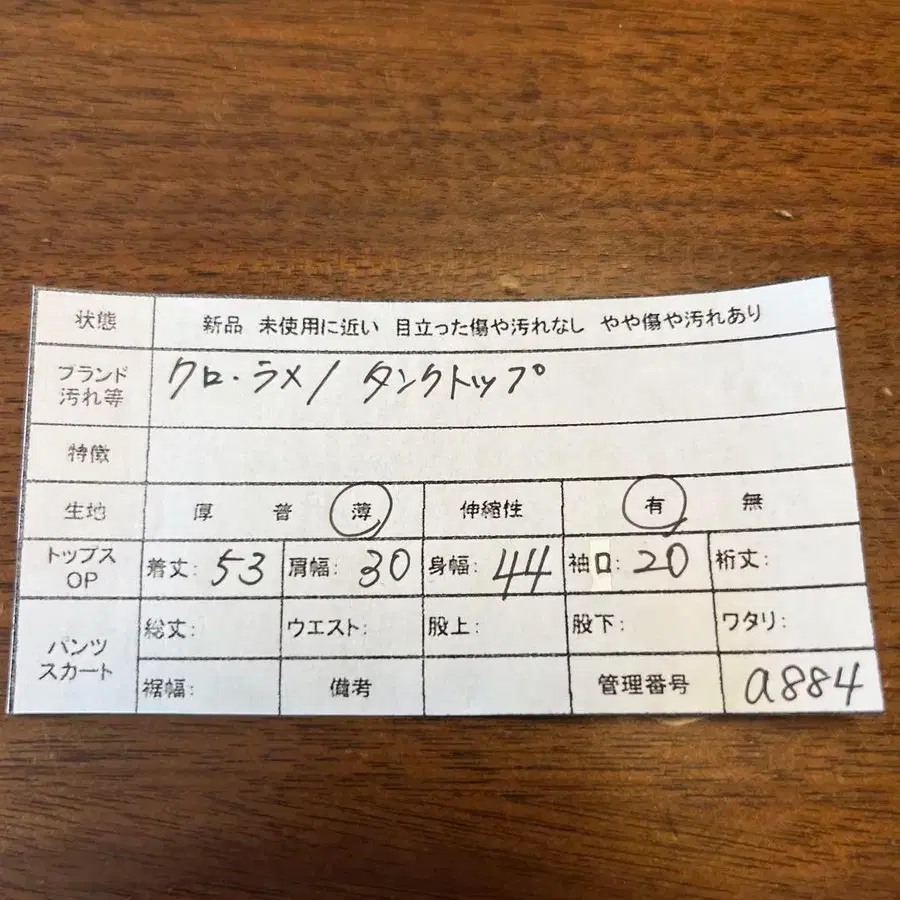 状態 新品 未使用に近い 目立った傷や汚れなし やや傷や汚れあり
ブランド
汚れ等 クロ・ラメ/タンクトップ
特徴
生地 厚 普 薄 伸縮性 有 無
トップス
OP 着丈: 53 肩幅: 30 身幅: 44 袖口: 20 裄丈:
パンツ
スカート 総丈: ウエスト: 股上: 股下: ワタリ:
裾幅: 備考 管理番号 a884